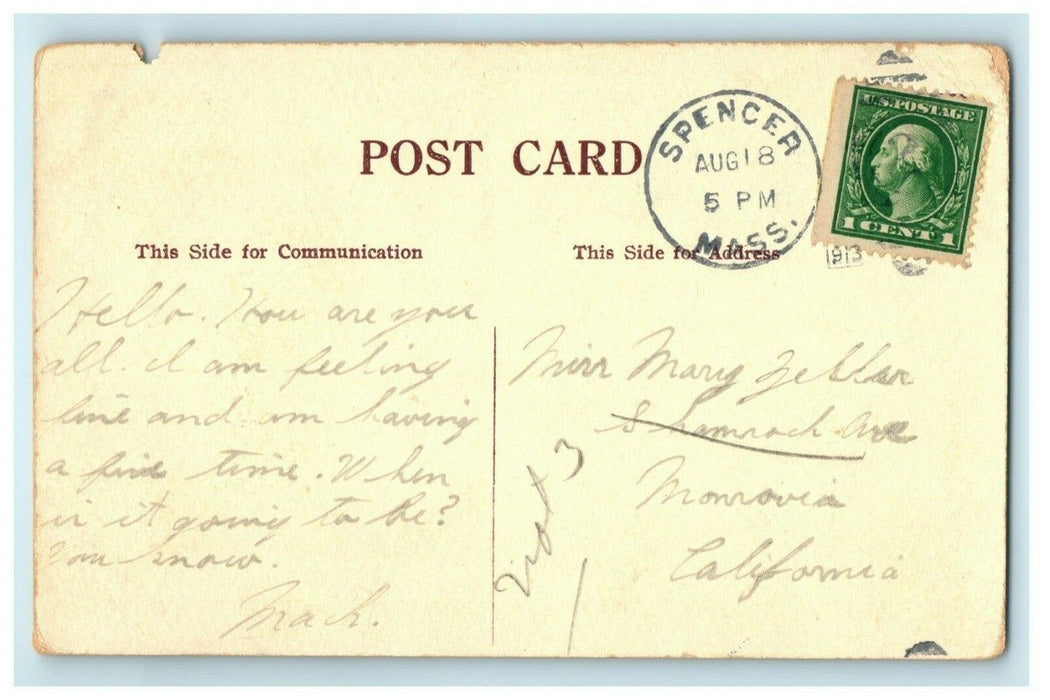 POST CARD
SPENCER
AUG 18
5 PM
MASS.
1913
U.S. POSTAGE
1 CENT 1
This Side for Communication
This Side for Address
Hello. How are you
all. I am feeling
fine and am having
a fine time. When
is it going to be?
You know.
Mack.
Miss Mary
Shamrock Ave
Monrovia
California